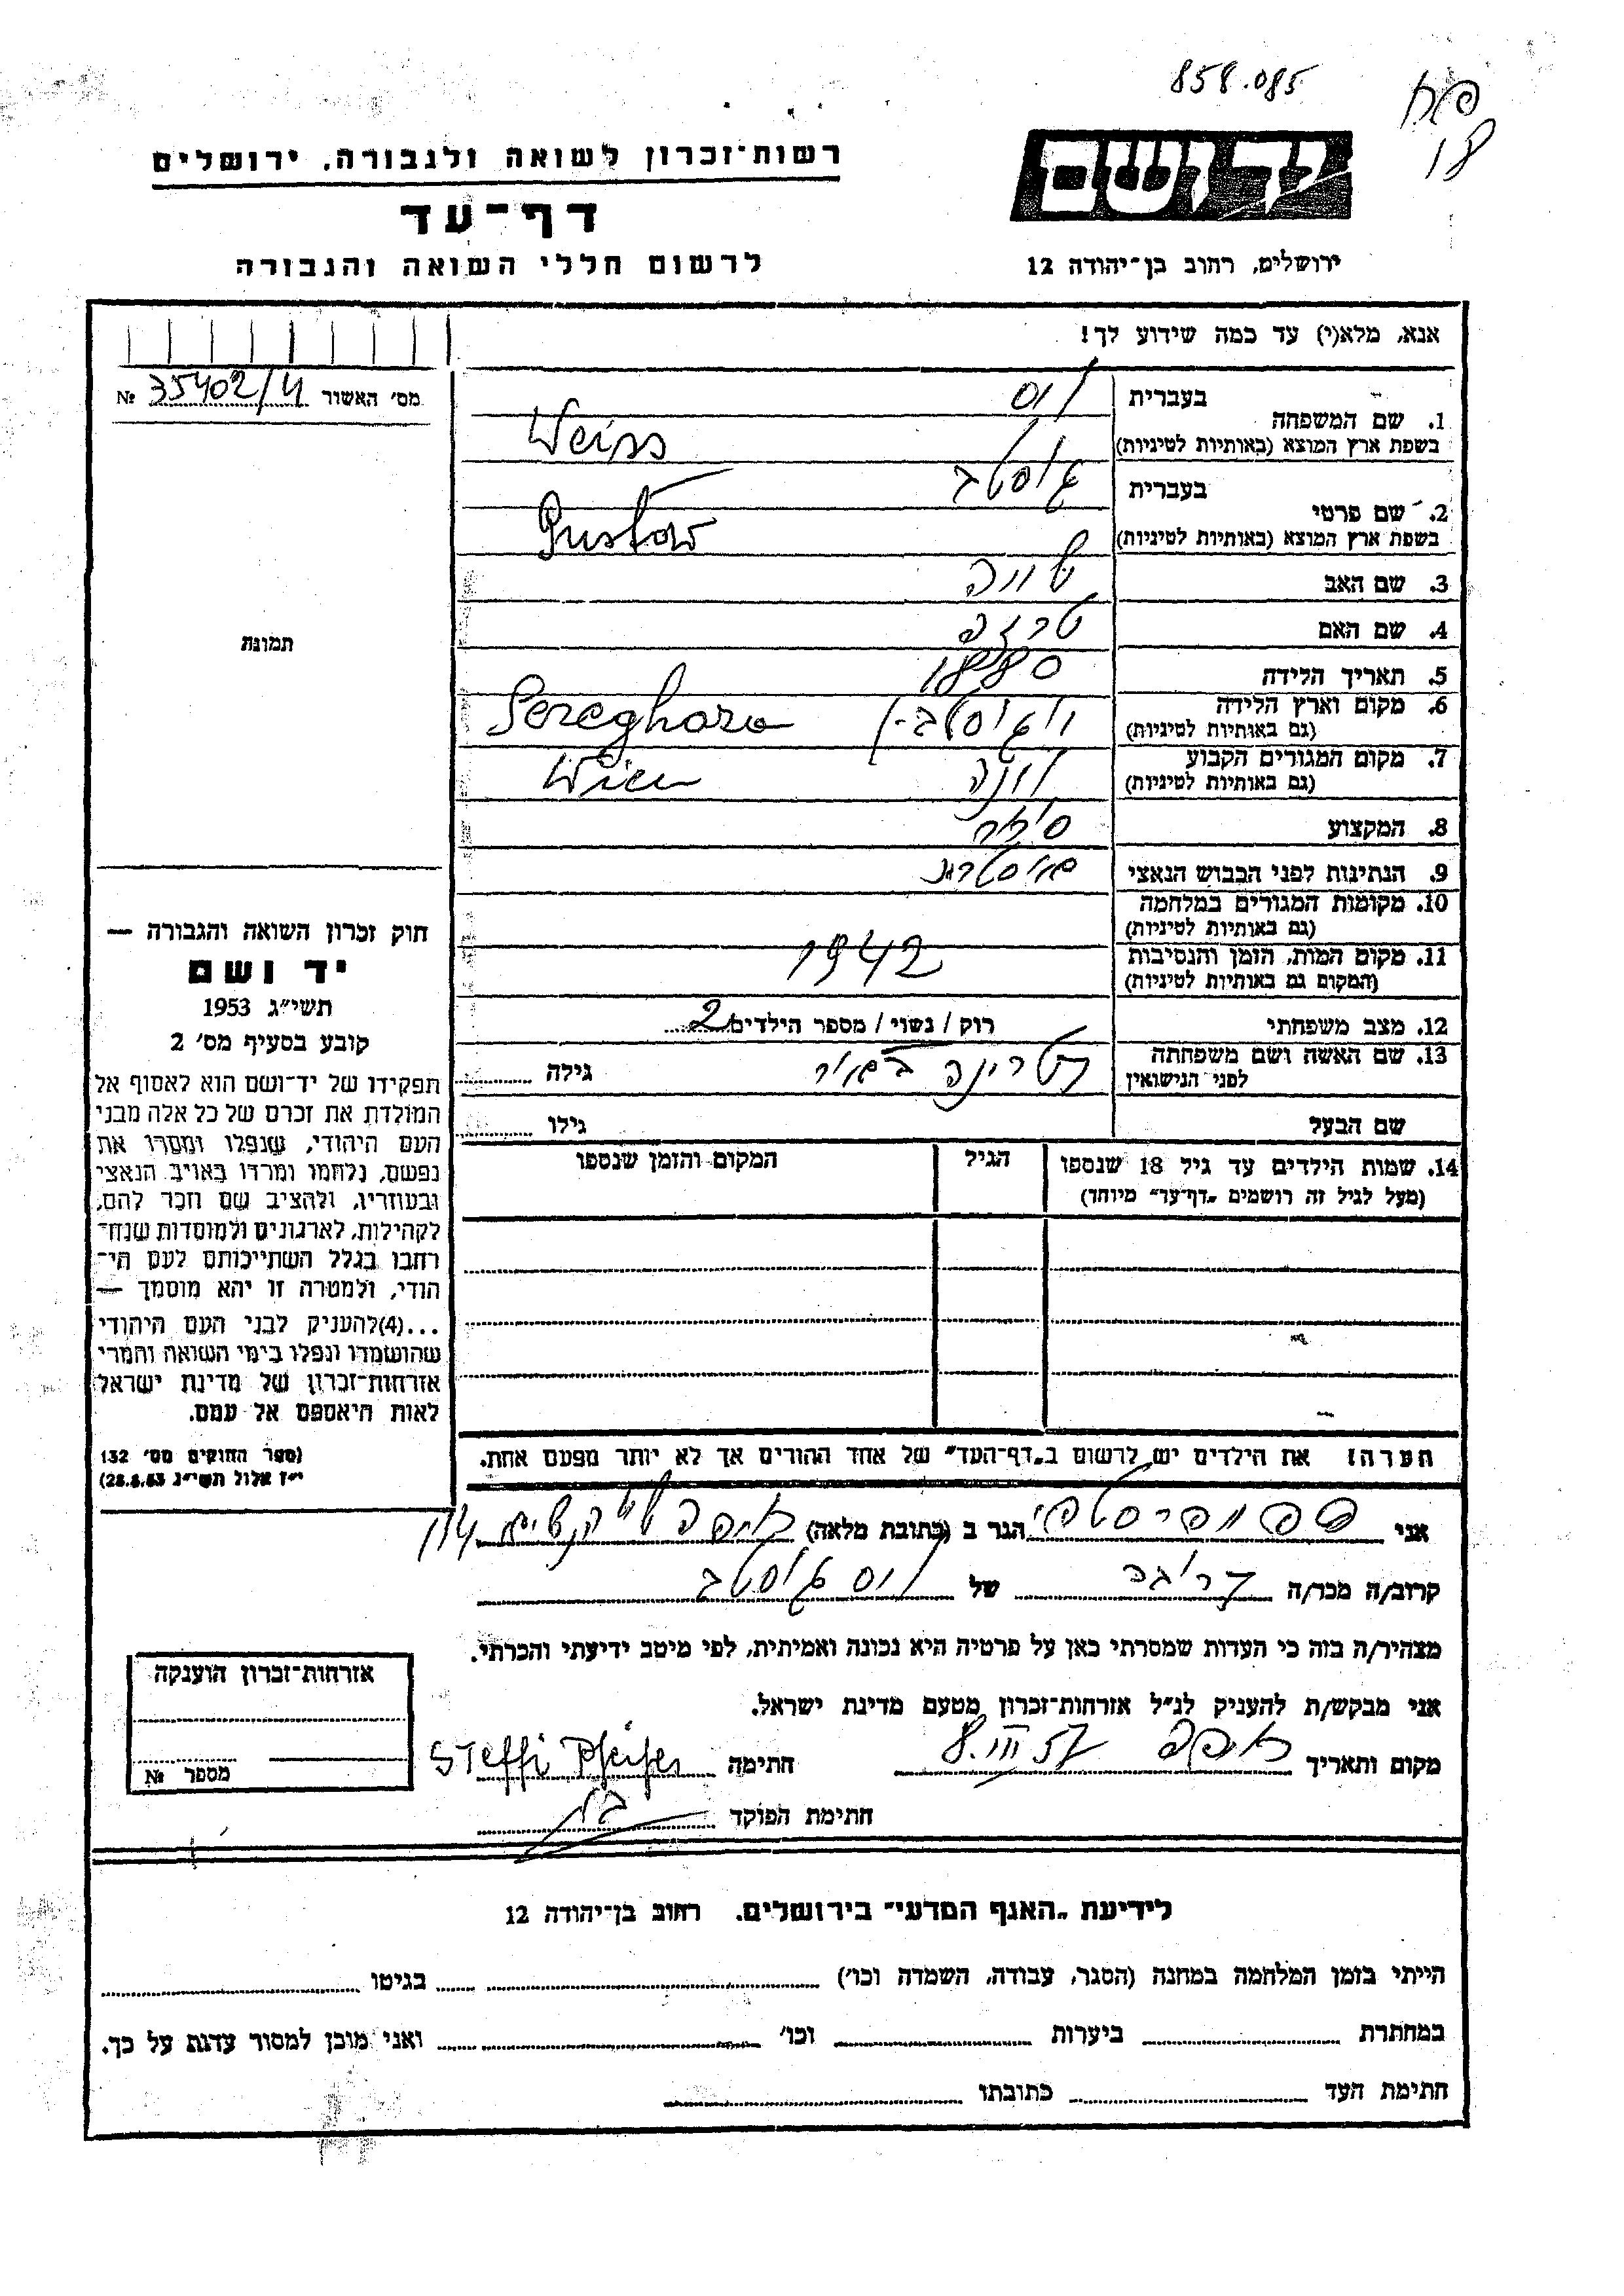 858.085
18
רשות־זכרון לשואה ולגבורה, ירושלים
דף־עד
לרשום חללי השואה והגבורה
ידושם
ירושלים, רחוב בן־יהודה 12
אנא, מלא(י) עד כמה שידוע לך!
מס' האשור 35402/4 №
תמונה
חוק זכרון השואה והגבורה —
יד ושם
תשי״ג 1953
קובע בסעיף מס' 2
תפקידו של יד־ושם הוא לאסוף אל
המולדת את זכרם של כל אלה מבני
העם היהודי, שנפלו ומסרו את
נפשם, נלחמו ומרדו באויב הנאצי
ובעוזריו, ולהציב שם וזכר להם,
לקהילות, לארגונים ולמוסדות שנח־
רבו בגלל השתייכותם לעם הי־
הודי, ולמטרה זו יהא מוסמך —
...(4)להעניק לבני העם היהודי
שהושמדו ונפלו בימי השואה והמרי
אזרחות־זכרון של מדינת ישראל
לאות היאספם אל עמם.
(ספר החוקים מס' 132
י״ז אלול תשי״ג 28.8.53)
בעברית ויס
1. שם המשפחה
בשפת ארץ המוצא (באותיות לטיניות) Weiss
בעברית גוסטב
2. שם פרטי
בשפת ארץ המוצא (באותיות לטיניות) Gustav
3. שם האב
4. שם האם טרזה
5. תאריך הלידה 1880
6. מקום וארץ הלידה
(גם באותיות לטיניות)
7. מקום המגורים הקבוע וינה Wien
(גם באותיות לטיניות)
8. המקצוע סוחר
9. הנתינות לפני הכבוש הנאצי אוסטרית
10. מקומות המגורים במלחמה
(גם באותיות לטיניות)
11. מקום המות, הזמן והנסיבות 1942
(המקום גם באותיות לטיניות)
12. מצב משפחתי רוק / נשוי / מספר הילדים 2
13. שם האשה ושם משפחתה קטרינה באואר גילה
לפני הנישואין
שם הבעל גילו
14. שמות הילדים עד גיל 18 שנספו הגיל המקום והזמן שנספו
(מעל לגיל זה רושמים „דף־עד״ מיוחד)
הערה: את הילדים יש לרשום ב„דף־העד״ של אחד ההורים אך לא יותר מפעם אחת.
אני הגר ב (כתובת מלאה) חיפה
קרוב/ה מכר/ה קרובה של ויס גוסטב
מצהיר/ה בזה כי העדות שמסרתי כאן על פרטיה היא נכונה ואמיתית, לפי מיטב ידיעתי והכרתי.
אני מבקש/ת להעניק לנ״ל אזרחות־זכרון מטעם מדינת ישראל.
מקום ותאריך חיפה 8.III.57 חתימה Steffi Pfeifer
חתימת הפוקד
אזרחות־זכרון הוענקה
מספר №
לידיעת „האגף המדעי״ בירושלים. רחוב בן־יהודה 12
הייתי בזמן המלחמה במחנה (הסגר, עבודה, השמדה וכו') בגיטו
במחתרת ביערות וכו' ואני מוכן למסור עדות על כך.
חתימת העד כתובתו